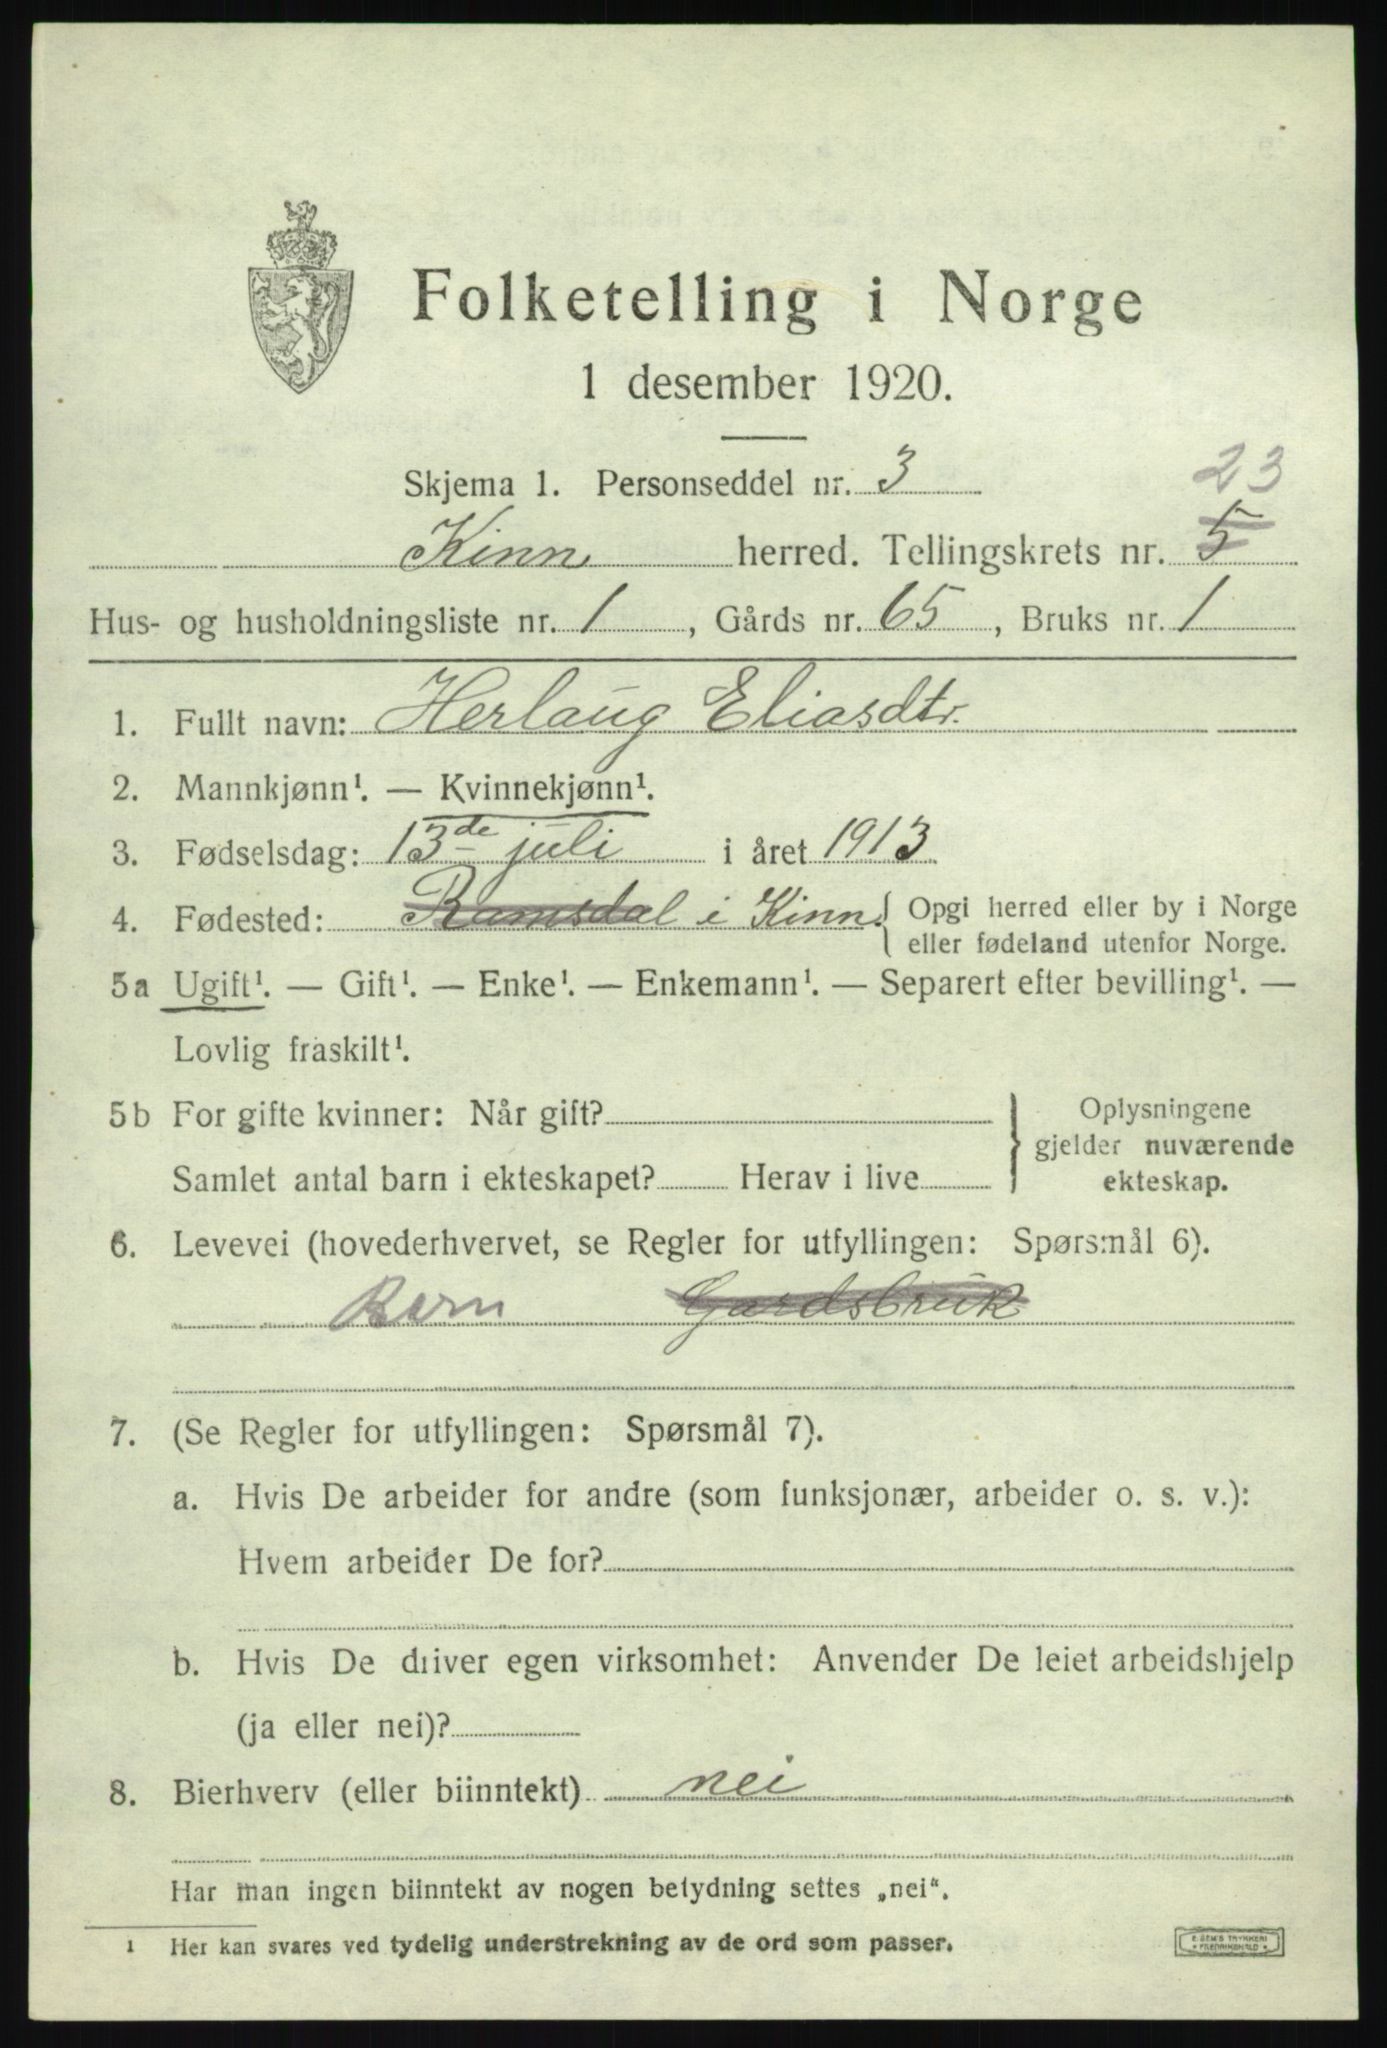 Folketelling i Norge
1 desember 1920.
Skjema 1. Personseddel nr. 3
23
Kinn herred. Tellingskrets nr. 5
Hus- og husholdningsliste nr. 1, Gårds nr. 65, Bruks nr. 1
1. Fullt navn: Herlaug Eliasdtr.
2. Mannkjønn¹. — Kvinnekjønn¹.
3. Fødselsdag: 13de juli i året 1913
4. Fødested: Ramsdal i Kinn. { Opgi herred eller by i Norge
eller fødeland utenfor Norge.
5a Ugift¹. — Gift¹. — Enke¹. — Enkemann¹. — Separert efter bevilling¹. —
Lovlig fraskilt¹.
5b For gifte kvinner: Når gift? } Oplysningene
gjelder nuværende
Samlet antal barn i ekteskapet? Herav i live ekteskap.
6. Levevei (hovederhvervet, se Regler for utfyllingen: Spørsmål 6).
Barn Gardsbruk
7. (Se Regler for utfyllingen: Spørsmål 7).
a. Hvis De arbeider for andre (som funksjonær, arbeider o. s. v.):
Hvem arbeider De for?
b. Hvis De driver egen virksomhet: Anvender De leiet arbeidshjelp
(ja eller nei)?
8. Bierhverv (eller biinntekt) nei
Har man ingen biinntekt av nogen betydning settes „nei“.
1 Her kan svares ved tydelig understrekning av de ord som passer.
E. SEM'S TRYKKERI
FREDRIKSHALD